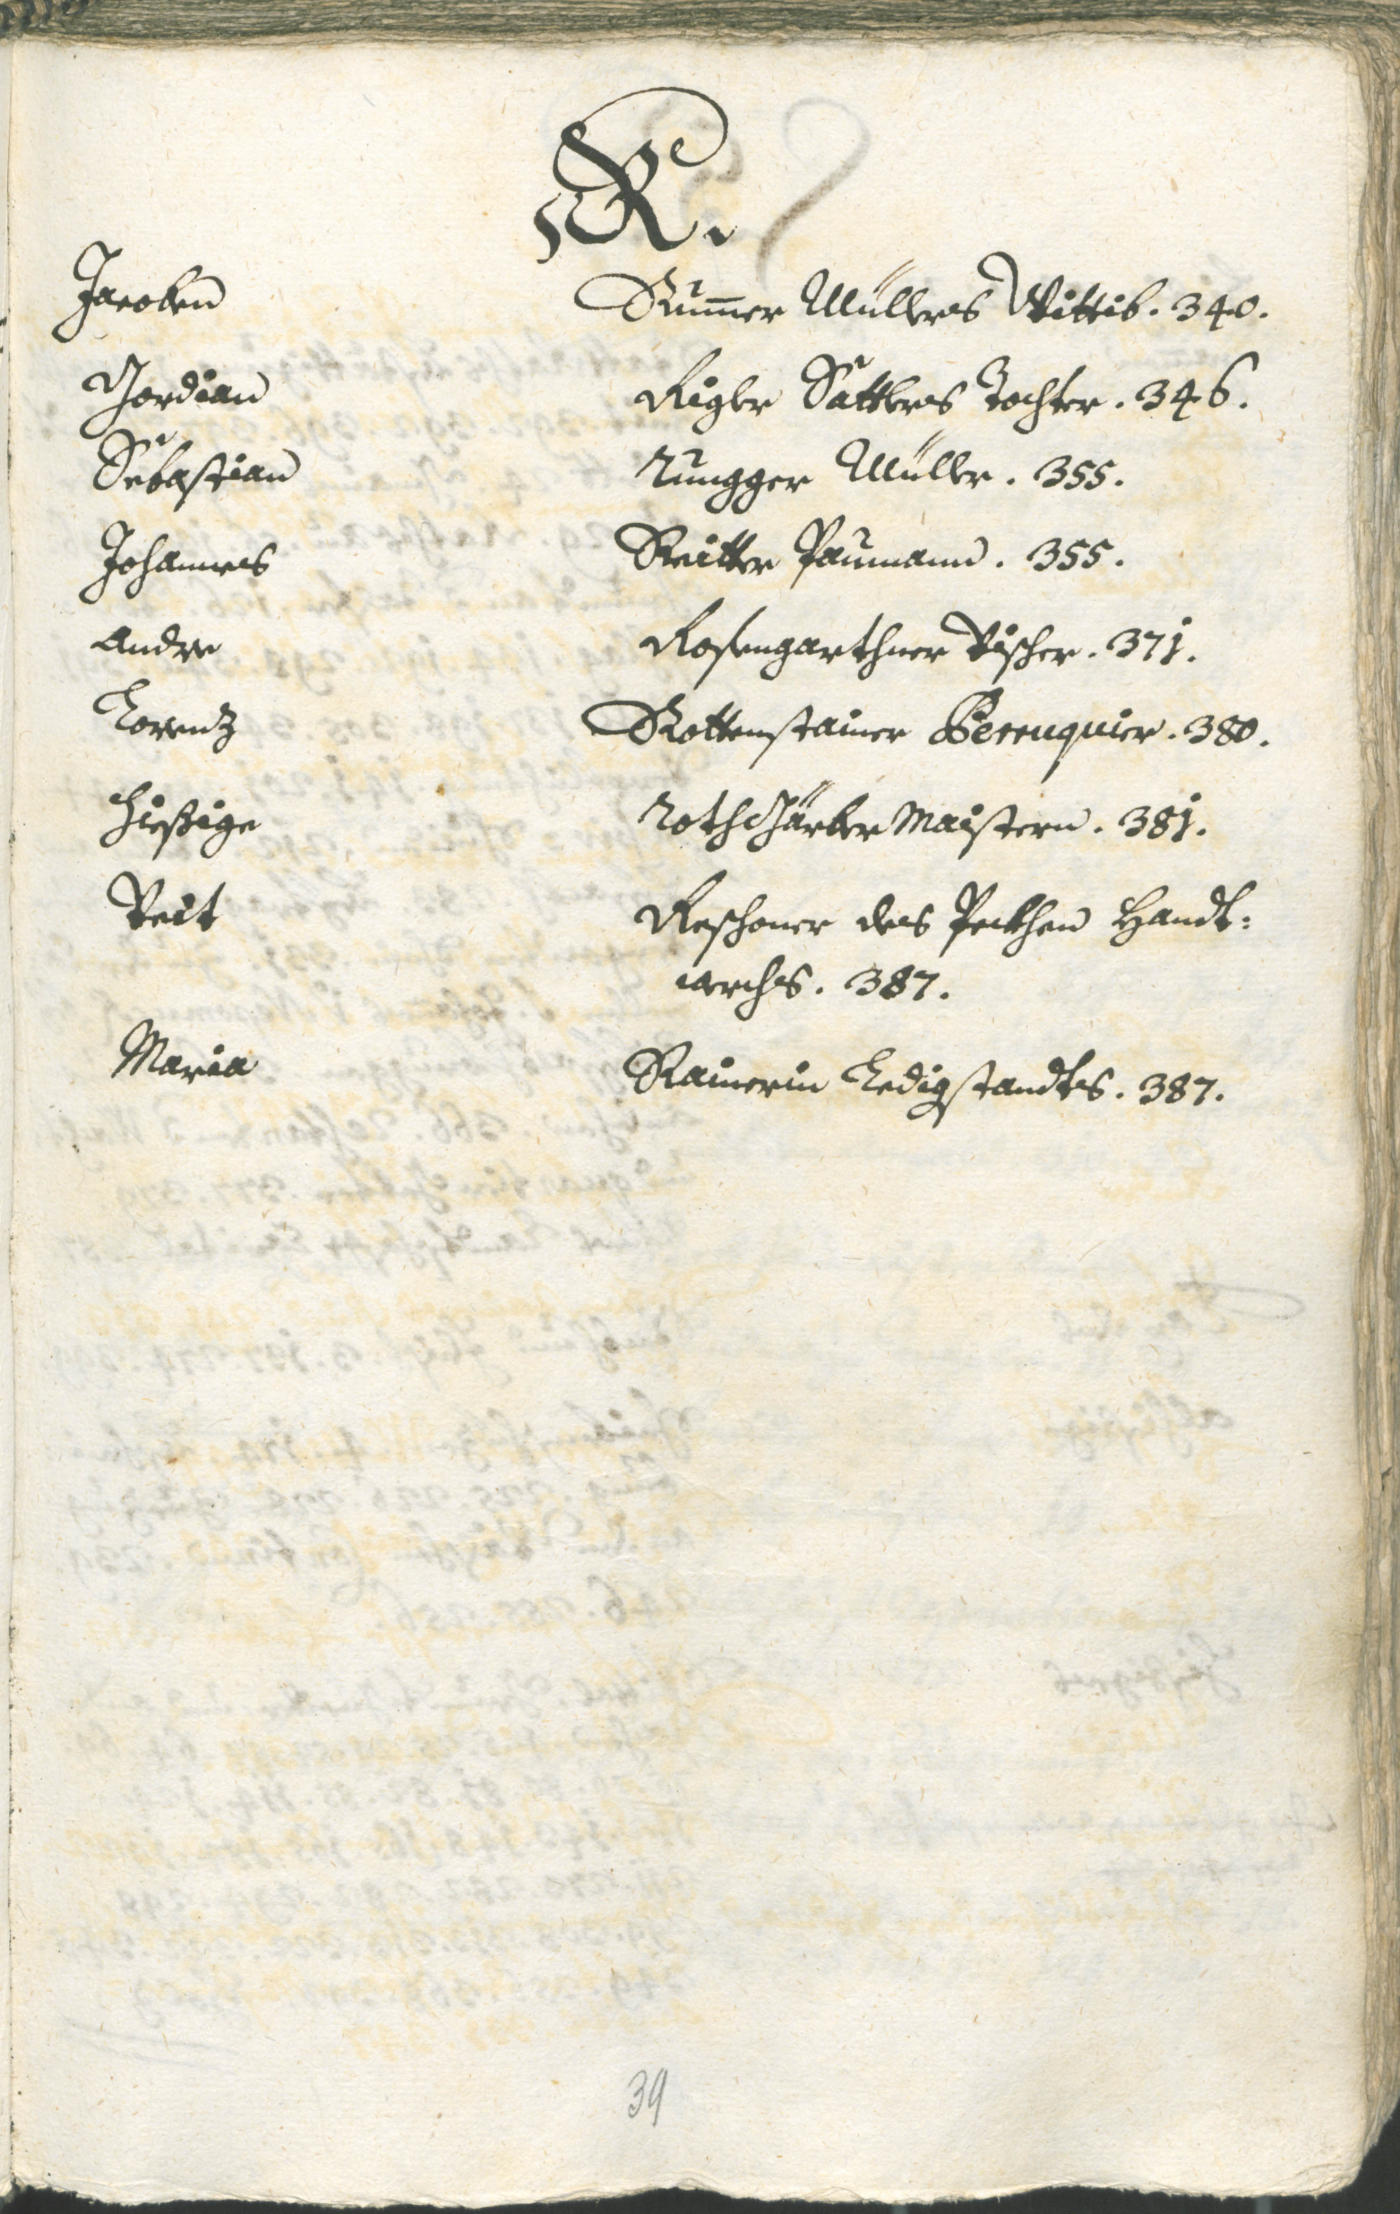 R.
Jacoben Rum̄er Müllers Wittib. 340.
Gordian Rigler Sattlers Tochter. 346.
Sebastian Rungger Müller. 355.
Johannes Reitter Paumann. 355.
Andre Rosengarthner Vischer. 371.
Lorenz Rottenstainer Perruquier. 380.
Hiesige Rothgärber Maistern. 381.
Veit Reschoner des Pekhen Handt-
werchs. 387.
Maria Rainerin Ledigstandts. 387.
39